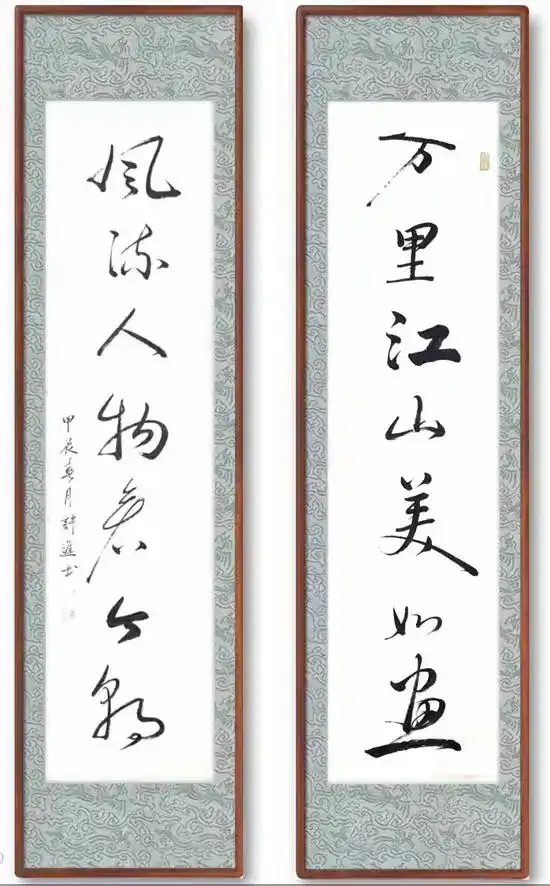 万里江山美如畫
風流人物看今朝
甲辰春月許進书